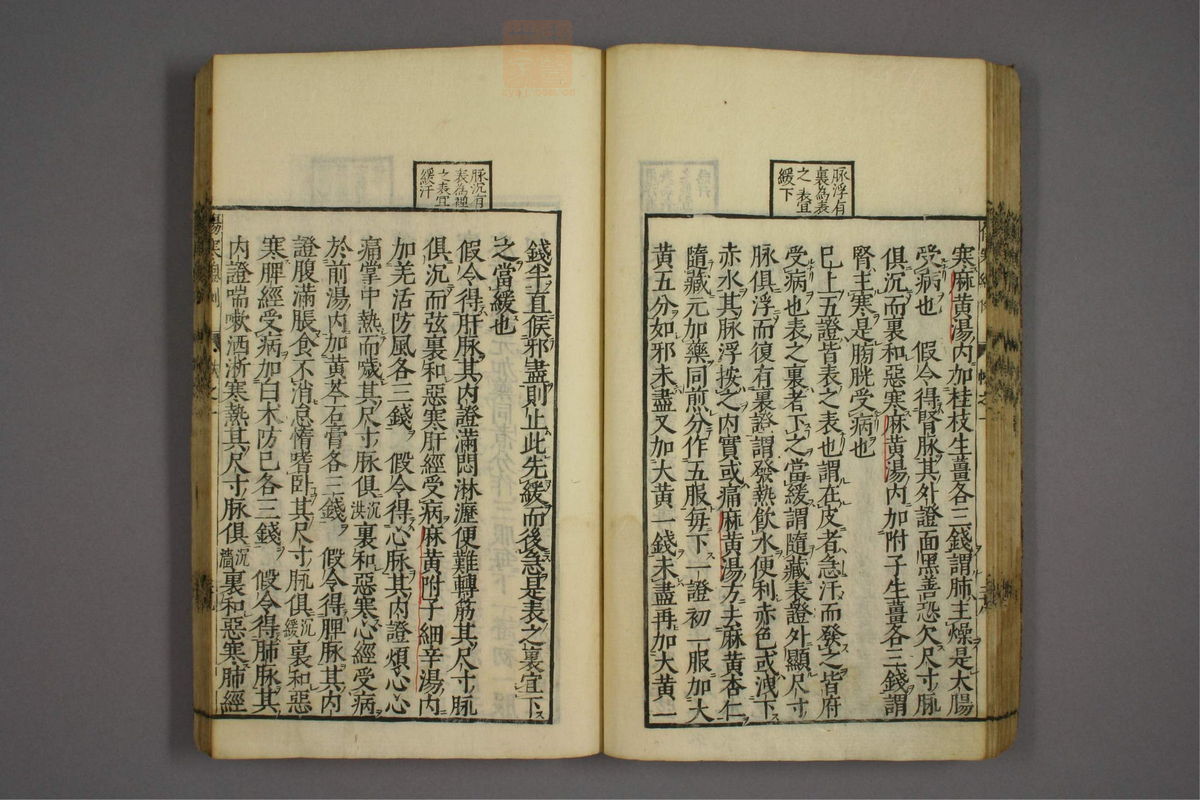 脉浮有
裏為表
之表宜
緩下
寒麻黄湯内加桂枝生薑各三錢謂肺主燥是大腸
受病也　假令得腎脉其外證面黑善恐欠尺寸脉
俱沉而裏和惡寒麻黄湯内加附子生薑各三錢謂
腎主寒是膀胱受病也
已上五證皆表之表也謂在皮者急汗而發之皆府
受病也表之裏者下之當緩謂隨藏表證外顯尺寸
脉俱浮而復有裏證謂發熱飲水便利赤色或洩下
赤水其脉浮按之内實或痛麻黄湯方去麻黄杏仁
隨藏元加藥同煎分作五服每下一證初一服加大
黄五分如邪未盡又加大黄一錢未盡再加大黄一
脉沉有
表為裡
之表宜
緩汗
錢半直候邪盡則止此先緩而後急是表之裏宜下
之當緩也
假令得肝脉其内證滿悶淋瀝便難轉筋其尺寸脉
俱沉而弦裏和惡寒肝經受病麻黄附子細辛湯内
加羌活防風各三錢　假令得心脉其内證煩心心
痛掌中熱而噦其尺寸脉俱沉洪裏和惡寒心經受病
於前湯内加黄芩石膏各三錢　假令得脾脉其内
證腹滿脹食不消怠惰嗜卧其尺寸脉俱沉緩裏和惡
寒脾經受病加白木防己各三錢　假令得肺脉其
内證喘嗽洒淅寒熱其尺寸脉俱沉濇裏和惡寒肺經